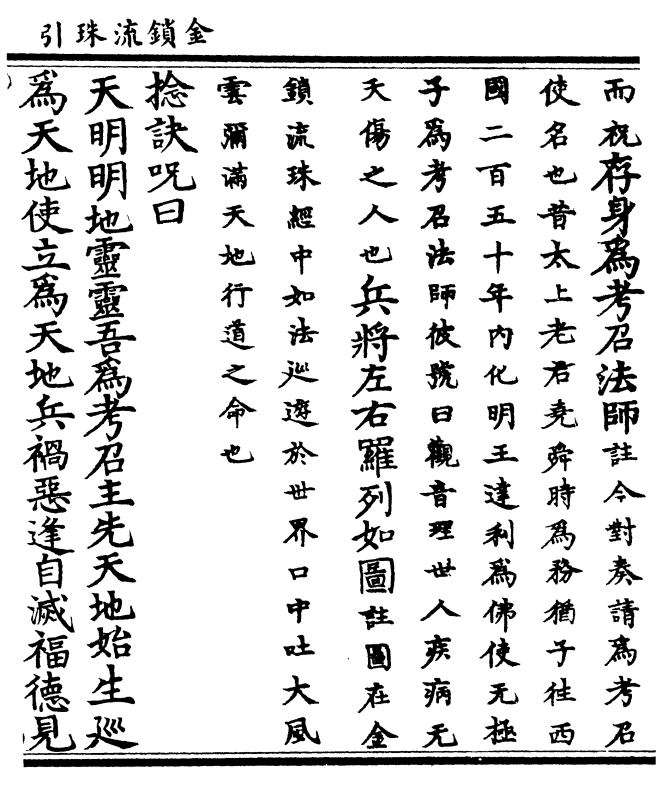 金鎖流珠引
而祝存身爲考召法師註今對奏請爲考召
使名也昔太上老君堯舜時爲務猶子往西
國二百五十年內化明王達利爲佛使无極
子爲考召法師彼號曰觀音理世人疾病无
夭傷之人也兵將左右羅列如圖註圖在金
鎖流珠經中如法巡遊於世界口中吐大風
雲彌滿天地行道之命也
捻訣呪曰
天明明地靈靈吾爲考召主先天地始生巡
爲天地使立爲天地兵禍惡逢自滅福德見